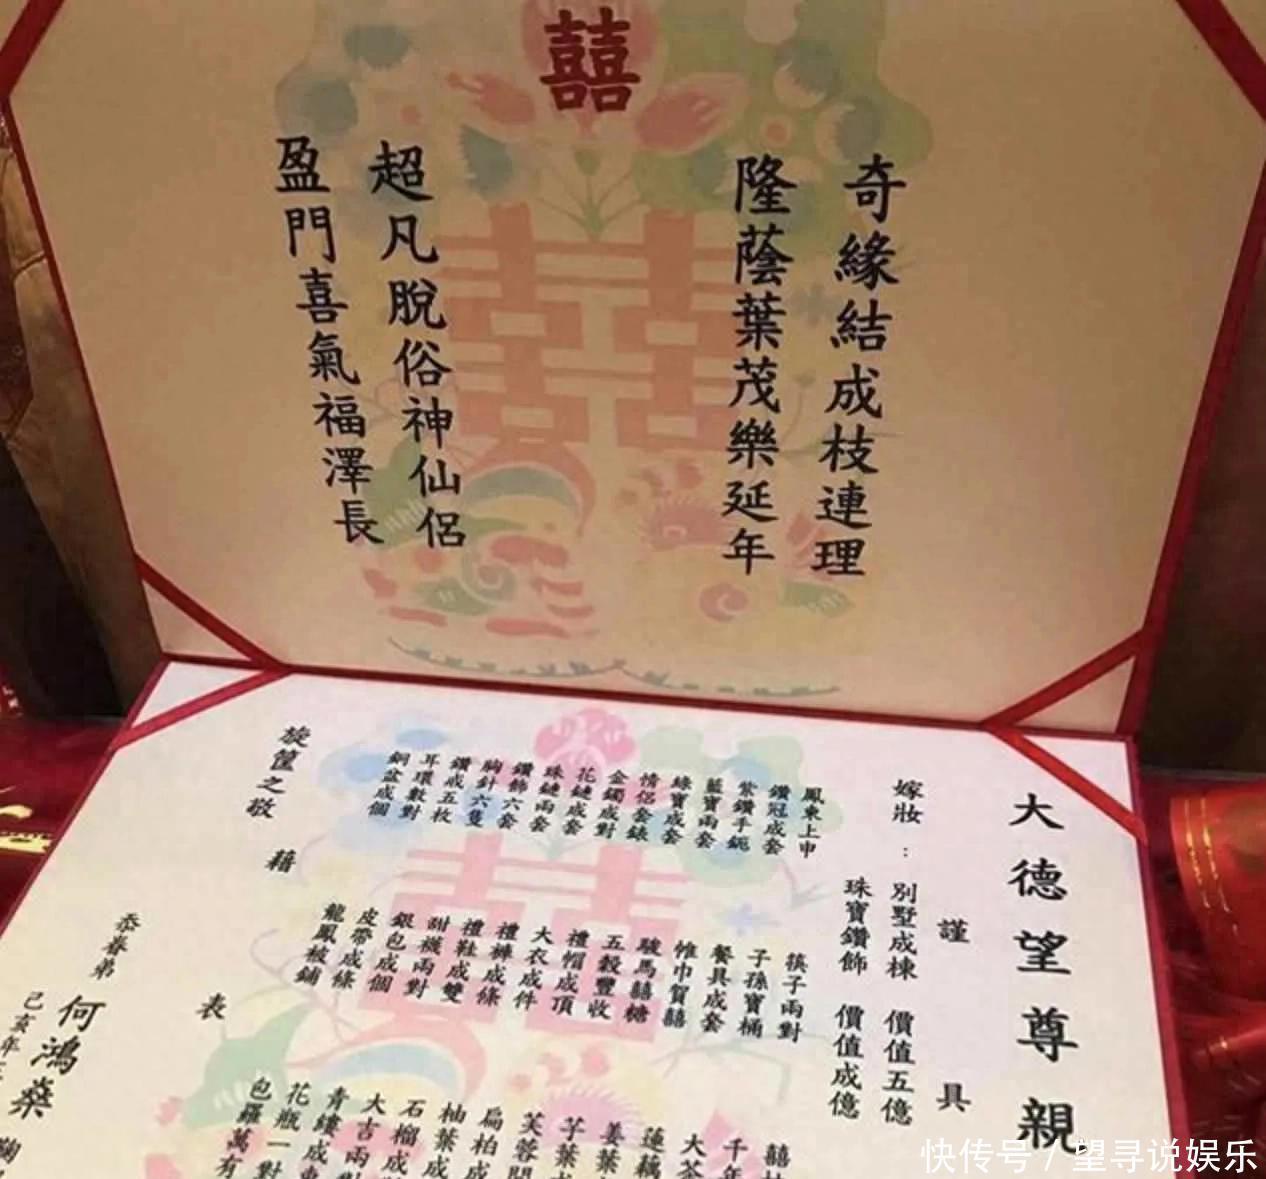 囍
奇緣結成枝連理
隆蔭葉茂樂延年
超凡脫俗神仙侶
盈門喜氣福澤長
大德望尊親
謹具
嫁妝：別墅成棟 價值五億
珠寶鑽飾 價值成億
鳳東上申
鑽冠成套
紫鑽手鈪
藍寶兩套
綠寶成套
情侶套錶
金鐲成對
花鏈成套
珠鏈兩套
鑽飾六套
胸針六隻
鑽戒五枚
耳環數對
銅盆成個
筷子兩對
子孫寶桶
餐具成套
帷巾賀囍
駿馬囍糖
五穀豐收
禮帽成頂
大衣成件
禮褲成條
禮鞋成雙
甜襪兩對
銀包成個
皮帶成條
龍鳳被鋪
千年
大茶
蓮藕
姜葉
芋葉
芙蓉
扁柏成
柚葉成
石榴成
大吉兩
青縷成
花瓶一對
包羅萬有
旋篚之敬 藉
表
忝眷弟 何鴻燊 鞠
己亥年
快传号 / 望寻说娱乐